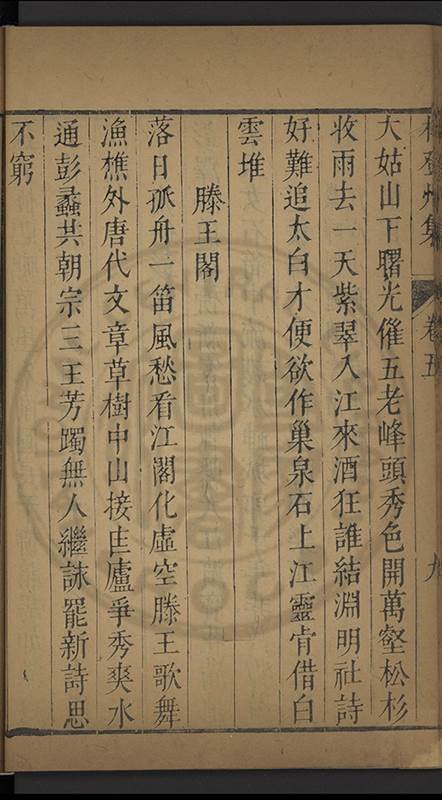 林登州集 卷五 九
大姑山下曙光催五老峰頭秀色開萬壑松杉
收雨去一天紫翠入江來酒狂誰結淵明社詩
好難追太白才便欲作巢泉石上江靈肯借白
雲堆
滕王閣
落日孤舟一笛風愁看江閣化虛空滕王歌舞
漁樵外唐代文章草樹中山接匡廬爭秀爽水
通彭蠡共朝宗三王芳躅無人繼詠罷新詩思
不窮